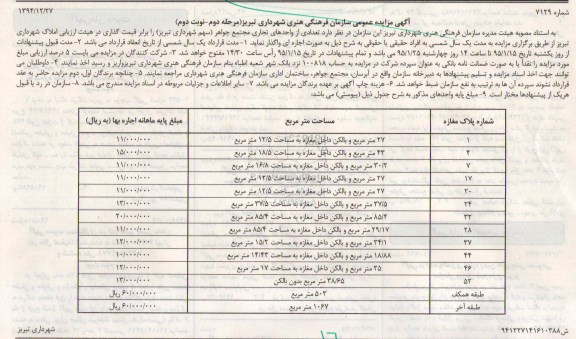 شماره ۷۱۳۹
۱۳۹۴/۱۲/۲۷
آگهی مزایده عمومی سازمان فرهنگی هنری شهرداری تبریز(مرحله دوم -نوبت دوم)
به استناد مصوبه هیئت مدیره سازمان فرهنگی هنری شهرداری تبریز این سازمان در نظر دارد تعدادی از واحدهای تجاری مجتمع جواهر (سهم شهرداری تبریز) را برابر قیمت گذاری در هیئت ارزیابی املاک شهرداری
تبریز از طریق برگزاری مزایده به مدت یک سال شمسی به افراد حقیقی یا حقوقی به شرح ذیل به صورت اجاره ای واگذار نماید. ۱- مدت قرارداد یک سال شمسی از تاریخ انعقاد قرارداد می باشد ۲- مدت قبول پیشنهادات
از روز یکشنبه تاریخ ۹۵/۱/۱۵ تا ساعت ۱۴ روز چهارشنبه ۹۵/۱/۲۵ می باشد و تمام پیشنهادات در تاریخ ۹۵/۱/۱۵ رأس ساعت ۱۴/۳۰ مفتوح خواهد شد. ۳- شرکت کنندگان در مزایده می بایست ۵ درصد ارزیابی مبلغ
مورد مزایده را نقداً یا به صورت ضمانت نامه بانکی به عنوان سپرده شرکت در مزایده به حساب ۱۰۰۸۱۸ نزد بانک شهر شعبه اطباء بنام سازمان فرهنگی هنری شهرداری تبریز واریز و رسید اخذ نمایند. ۴- داوطلبان می
توانند جهت اخذ اسناد مزایده و تسلیم پیشنهادها به دبیرخانه سازمان واقع در آبرسان، مجتمع جواهر، ساختمان اداری سازمان فرهنگی هنری شهرداری مراجعه نمایند. ۵- چنانچه برندگان اول، دوم مزایده حاضر به عقد
قرارداد نشوند سپرده آن ها به ترتیب به نفع سازمان ضبط خواهد شد. ۶- هزینه چاپ آگهی بر عهده برندگان مزایده می باشد. ۷- سایر اطلاعات و جزئیات مربوطه در اسناد مزایده مندرج می باشد. ۸- سازمان در رد یا قبول
هریک از پیشنهادها مختار است. ۹- مبلغ پایه واحدهای مذکور به شرح جدول ذیل (پیوستی) می باشد.
شماره پلاک مغازه مساحت متر مربع مبلغ پایه ماهانه اجاره بها (به ریال)
۱ ۲۷ متر مربع و بالکن داخل مغازه به مساحت ۱۲/۵ متر مربع ۱۱/۰۰۰/۰۰۰
۴ ۴۳ متر مربع و بالکن داخل مغازه به مساحت ۱۸/۵ متر مربع ۱۵/۰۰۰/۰۰۰
۷ ۳۰/۲ متر مربع و بالکن داخل مغازه به مساحت ۱۶/۸ متر مربع ۱۱/۰۰۰/۰۰۰
۱۷ ۲۷ متر مربع و بالکن داخل مغازه به مساحت ۱۲/۵ متر مربع ۱۱/۰۰۰/۰۰۰
۲۰ ۲۷ متر مربع و بالکن داخل مغازه به مساحت ۱۲/۵ متر مربع ۱۱/۰۰۰/۰۰۰
۲۴ ۳۷/۵ متر مربع و بالکن داخل مغازه به مساحت ۳۷/۵ متر مربع ۱۳/۰۰۰/۰۰۰
۳۲ ۸۵/۴ متر مربع و بالکن داخل مغازه به مساحت ۸۵/۴ متر مربع ۲۰/۰۰۰/۰۰۰
۲۸ ۲۹/۱۷ متر مربع و بالکن داخل مغازه به مساحت ۸۵/۴ متر مربع ۱۱/۰۰۰/۰۰۰
۳۷ ۳۴/۱ متر مربع و بالکن داخل مغازه به مساحت ۱۵/۲ متر مربع ۱۲/۰۰۰/۰۰۰
۴۴ ۱۸/۸۸ متر مربع و بالکن داخل مغازه به مساحت ۱۴/۴۳ متر مربع ۱۰/۰۰۰/۰۰۰
۴۶ ۳۵ متر مربع و بالکن داخل مغازه به مساحت ۱۷ متر مربع ۱۲/۰۰۰/۰۰۰
۵۲ ۳۸/۶۵ متر مربع بدون بالکن ۱۳/۰۰۰/۰۰۰
طبقه همکف ۵۰۲ متر مربع ۶۰/۰۰۰/۰۰۰ ریال
طبقه آخر ۱۰۶۷ متر مربع ۶۰/۰۰۰/۰۰۰ ریال
ش۹۴۱۲۲۷۱۴۱۶۱۰۳۸۸
شهرداری تبریز